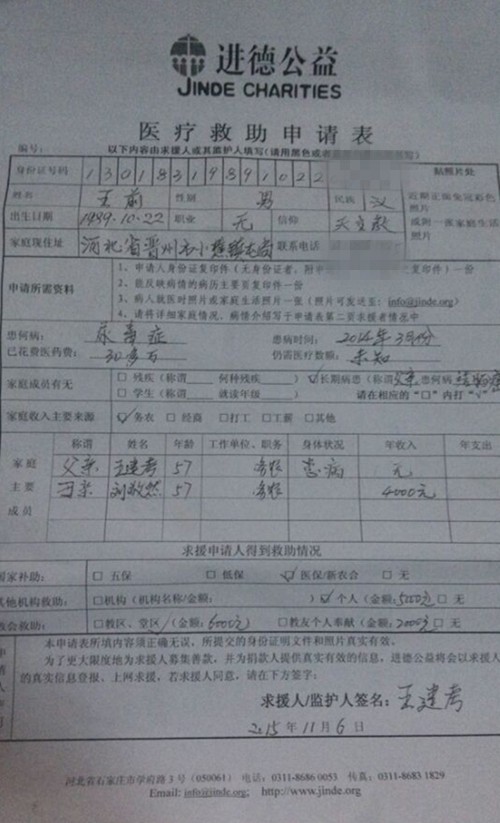 进德公益
JINDE CHARITIES
医疗救助申请表
编号: 以下内容由求援人或其监护人填写(请用黑色或 写)
身份证号码 13018319891022 贴照片处
姓名 王前 性别 男 民族 汉 近期正面免冠彩色照片或附一张家庭生活照片
出生日期 1989.10.22 职业 无 信仰 天主教
家庭现住址 河北省晋州市小樵镇 联系电话
申请所需资料
1、申请人身份证复印件(无身份证者,附申 复印件)一份
2、能反映病情的病历主要页复印件一份
3、病人就医时照片或家庭生活照片一张(照片可发送至: info@jinde.org)
4、请将详细家庭情况、病情介绍写于申请表第二页求援者情况中
患何病: 尿毒症 患病时间: 2014年3月份
已花费医药费: 30多万 仍需医疗数额: 未知
家庭成员有无 □ 残疾(称谓 何种残疾 ) ☑ 长期病患(称谓 父亲 患何病
□ 学生(称谓 就读年级 ) 请在相应的“□”内打“√”
家庭收入主要来源 ☑ 务农 □ 经商 □打工 □工薪 □其他
家庭主要成员
称谓 姓名 年龄 工作单位、职务 身体状况 年收入 年支出
父亲 王建考 57 务农 患病 无
母亲 57 务农 4000元
求援申请人得到救助情况
国家补助: □ 五保 □ 低保 ☑ 医保/新农合 □ 无
其他机构救助: □机构(机构名称/金额: ) ☑ 个人(金额: 5000元 □ 无
教会救助: □教区、堂区 (金额: 6000元) □教友个人奉献(金额: 2000元 □ 无
本申请表所填内容须正确无误,所提交的身份证明文件和照片真实有效。
为了更大限度地为求援人募集善款,并为捐款人提供真实有效的信息,进德公益将会以求援人
的真实信息登报、上网求援,若求援人同意,请在下方签字:
求援人/监护人签名: 王建考
2015年11月6日
河北省石家庄市学府路3号(050061) 电话: 0311-8686 0053 传真: 0311-8683 1829
Email: info@jinde.org; http://www.jinde.org